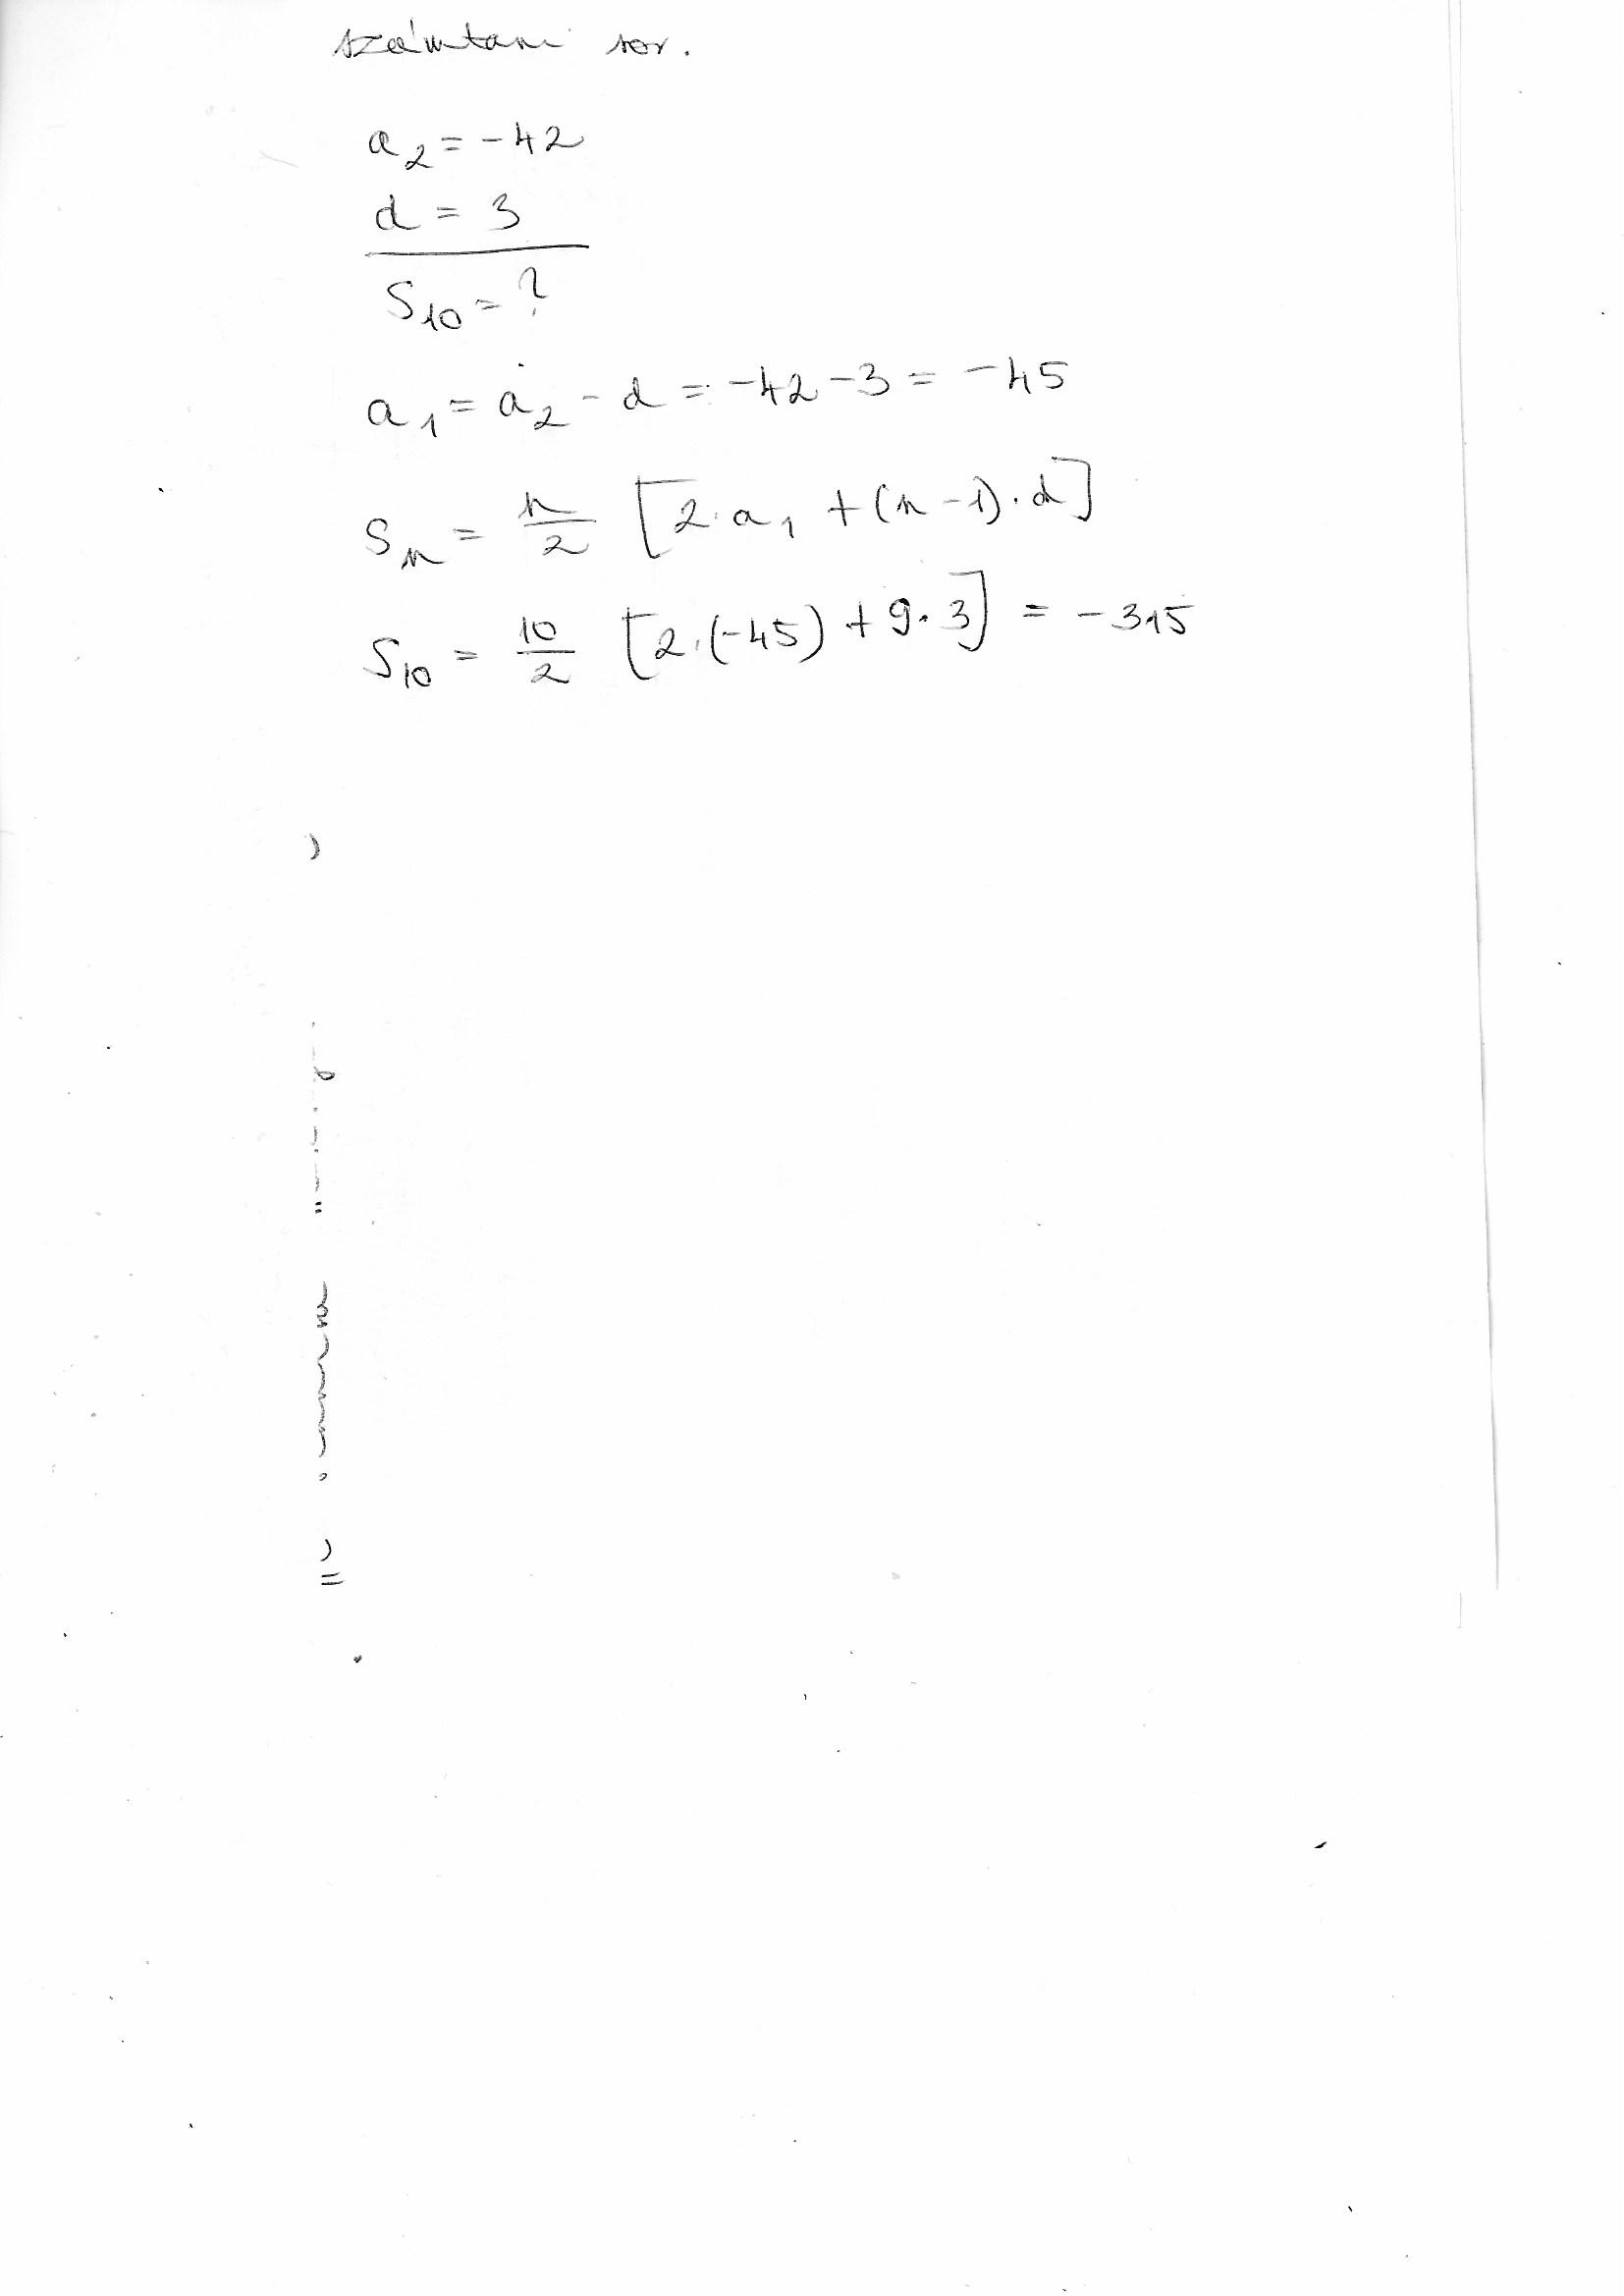 számtani sor.
a₂ = -42
d = 3
S₁₀ = ?
a₁ = a₂ - d = -42 - 3 = -45
Sₙ = n/2 [2·a₁ + (n-1)·d]
S₁₀ = 10/2 [2·(-45) + 9·3] = -315